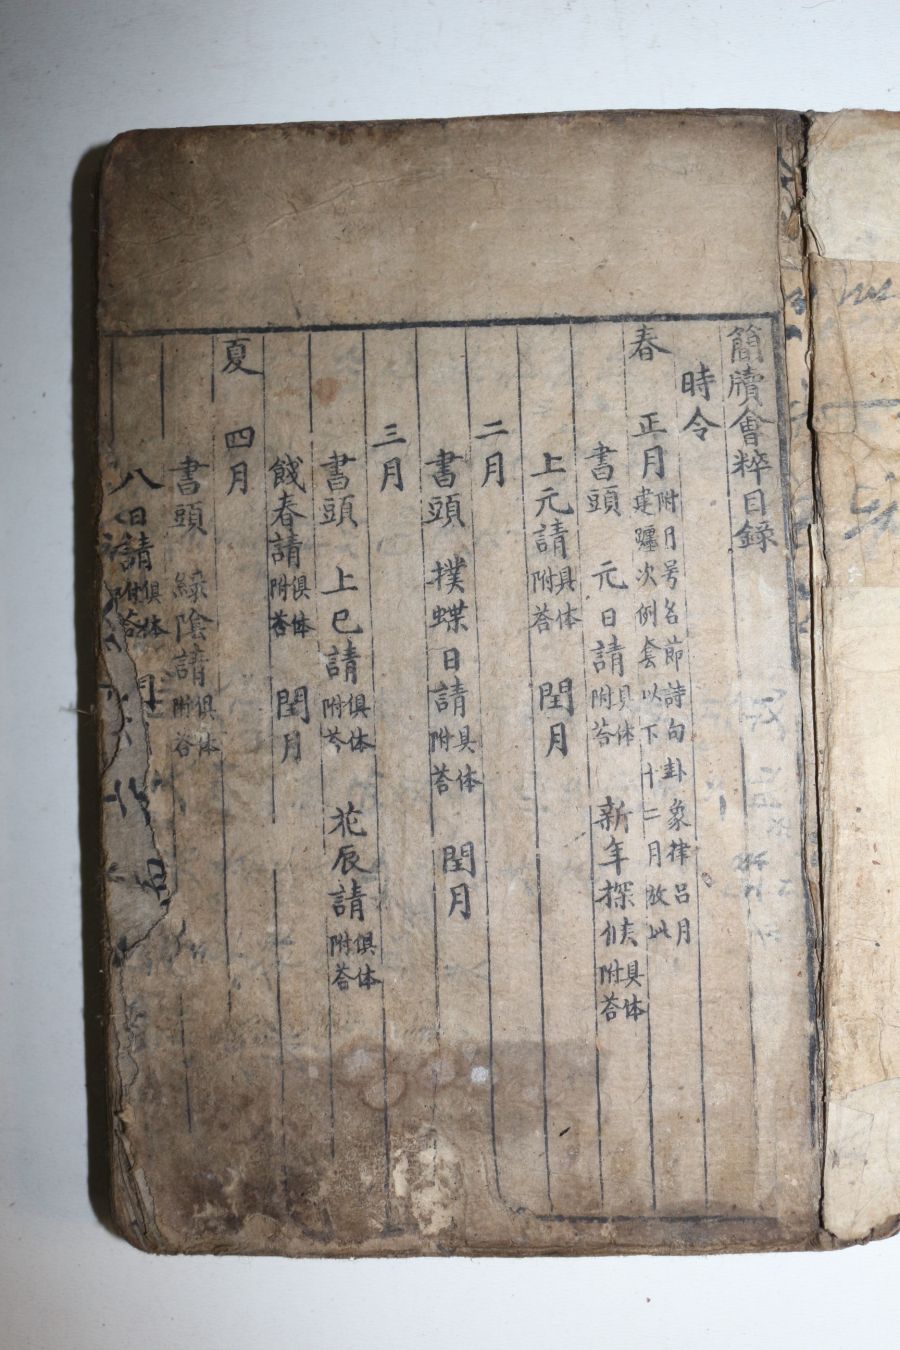 簡牘會粹目錄
時令
春 正月 附月号名節詩句卦象律呂月建躔次例套以下十二月放此
書頭 元日請 具体附答 新年探候 具体附答
上元請 具体附答 閏月
二月
書頭 撲蝶日請 具体附答 閏月
三月
書頭 上巳請 俱体附答 花辰請 俱体附答
餞春請 俱体附答 閏月
夏 四月
書頭 綠陰請 俱体附答
八日請 俱体附答 閏月